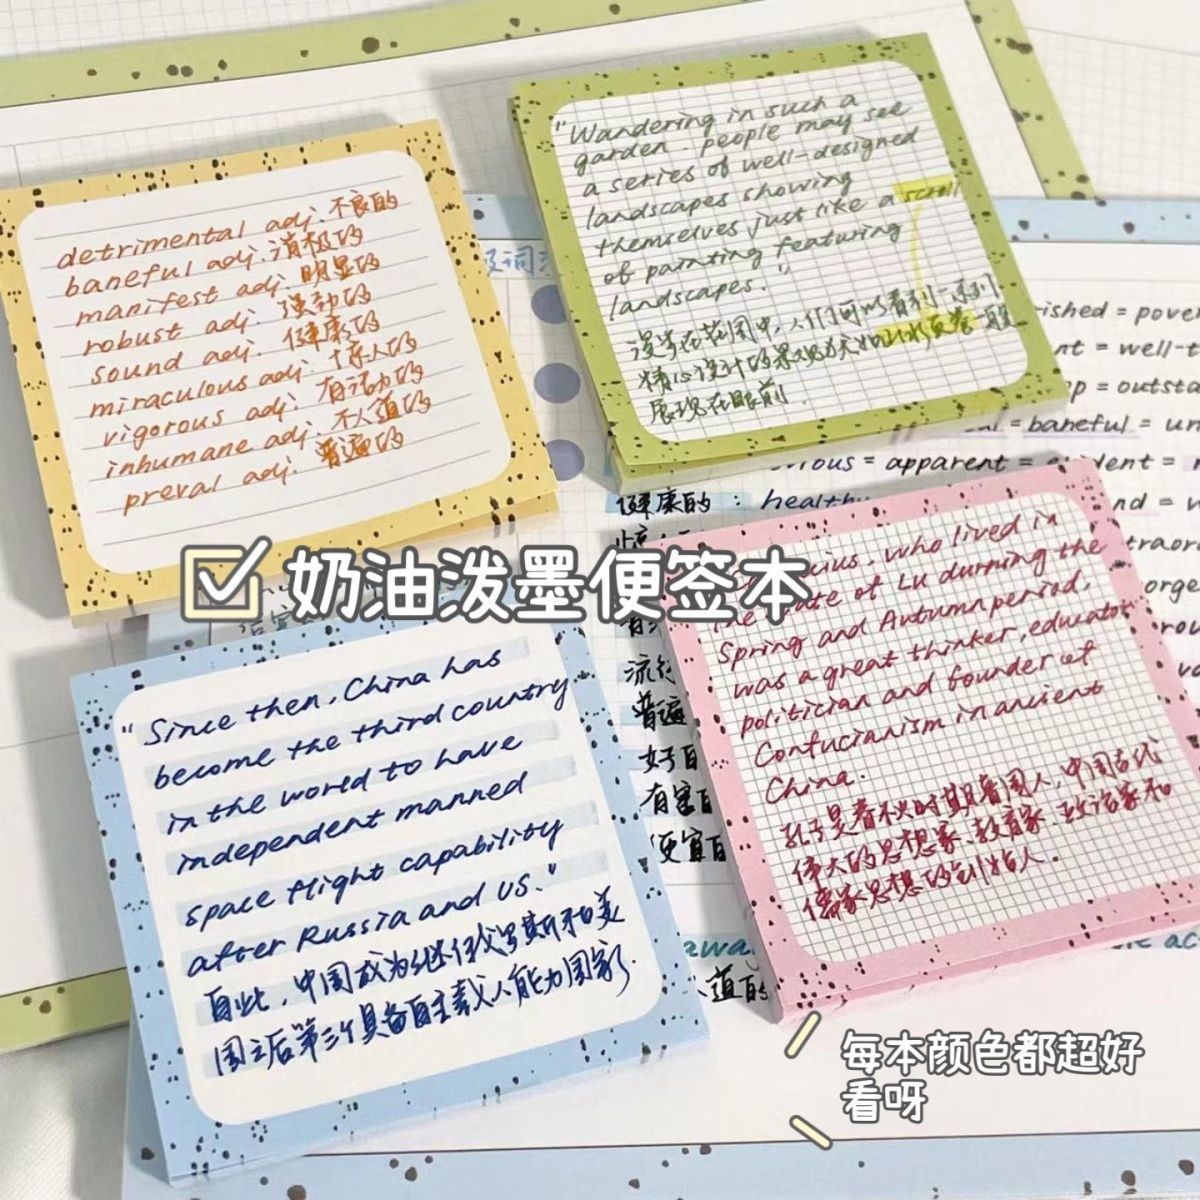 detrimental adj. 不良的
baneful adj. 消极的
manifest adj. 明显的
robust adj. 强劲的
sound adj. 健康的
miraculous adj. 惊人的
vigorous adj. 有活力的
inhumane adj. 不人道的
preval adj. 普遍的
"Wandering in such a
garden, people may see
a series of well-designed
landscapes showing
themselves just like a scroll
of painting featuring
landscapes."
漫步在花园中,人们可以看到一系列
精心设计的景观犹如山水画卷一般
展现在眼前.
奶油泼墨便签本
"Since then, China has
become the third country
in the world to have
independent manned
space flight capability
after Russia and US."
自此,中国成为继俄罗斯和美
国之后第三个具备自主载人能力国家.
who lived in
the State of Lu durning the
Spring and Autumn period,
was a great thinker, educator
politician and founder of
Confucianism in ancient
China.
孔子是春秋时期鲁国人,中国古代
伟大的思想家、教育家、政治家和
儒家思想的创始人.
= pover
= well-t
= outsta
= baneful = un
= apparent =
健康的: healthy
流行
普遍
有害
便宜
道的
每本颜色都超好
看呀